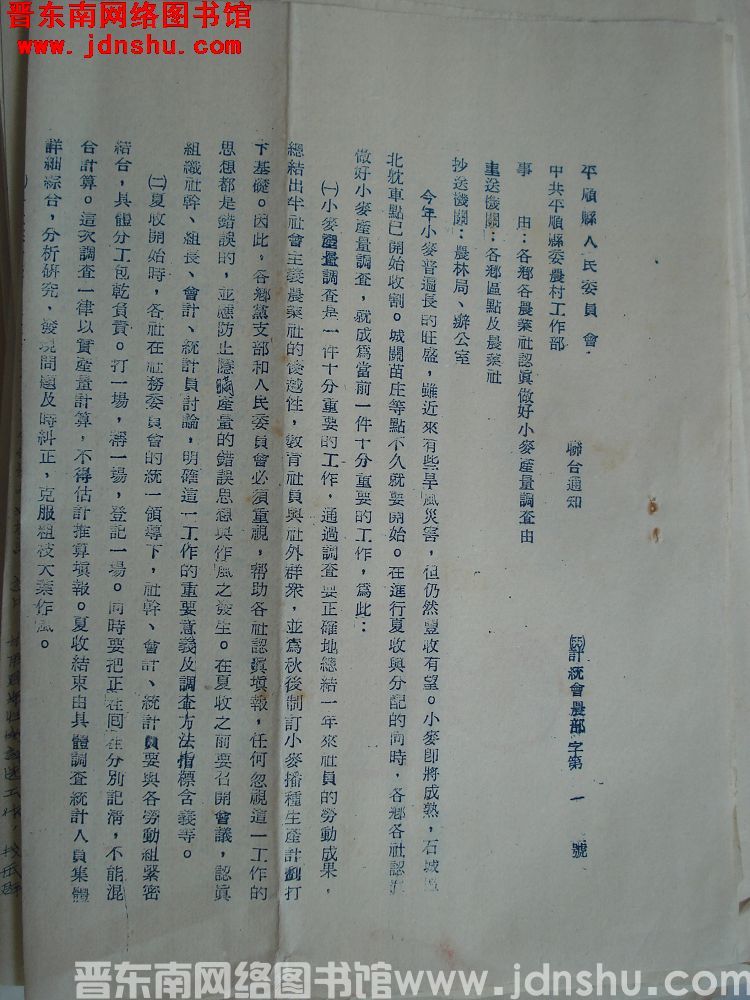 晋东南网络图书馆
www.jdnshu.com
平順縣人民委員會
中共平順縣委農村工作部
聯合通知
(55)計統會農部字第一號
事 由：各鄉各農業社認眞做好小麥產量調查由
主送機關：各鄉區點及農業社
抄送機關：農林局、辦公室
今年小麥普遍長的旺盛，雖近來有些旱風災害，但仍然豐收有望。小麥即將成熟，石城區
北耽車點已開始收割。城關苗庄等點不久就要開始。在進行夏收與分配的同時，各鄉各社認眞
做好小麥產量調查，就成爲當前一件十分重要的工作，爲此：
(一)小麥產量調查是一件十分重要的工作，通過調查要正確地總結一年來社員的勞動成果，
總結出半社會主義農業社的優越性，教育社員與社外群衆，並爲秋後制訂小麥播種生產計劃打
下基礎。因此，各鄉黨支部和人民委員會必須重視，帮助各社認眞填報，任何忽視這一工作的
思想都是錯誤的，並應防止隱瞞產量的錯誤思想與作風之發生。在夏收之前要召開會議，認眞
組織社幹、組長、會計、統計員討論，明確這一工作的重要意義及調查方法指標含義等。
(二)夏收開始時，各社在社務委員會的統一領導下，社幹、會計、統計員要與各勞動組緊密
結合，具體分工包乾負責。打一場，稱一場，登記一場。同時要把正在囘在分別記淸，不能混
合計算。這次調查一律以實產量計算，不得估計推算填報。夏收結束由具體調查統計人員集體
詳細綜合，分析研究，發現問題及時糾正，克服粗枝大葉作風。
晋东南网络图书馆www.jdnshu.com